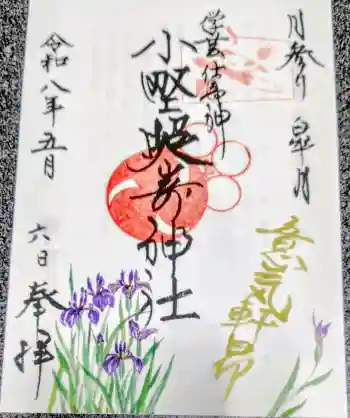 月参り 皐月
学芸仕事神
小野照崎神社
意気軒昂
令和八年五月
六日 奉拝